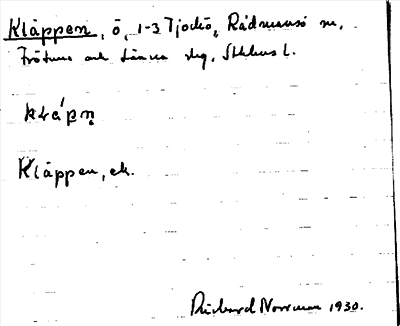 Kläppen, ö, 1-3 Tjockö, Rådmansö sn,
Frötuna och Länna skg, Sthlms l.
klápn̥
Kläppen, ek.
Rickard Norrman 1930.